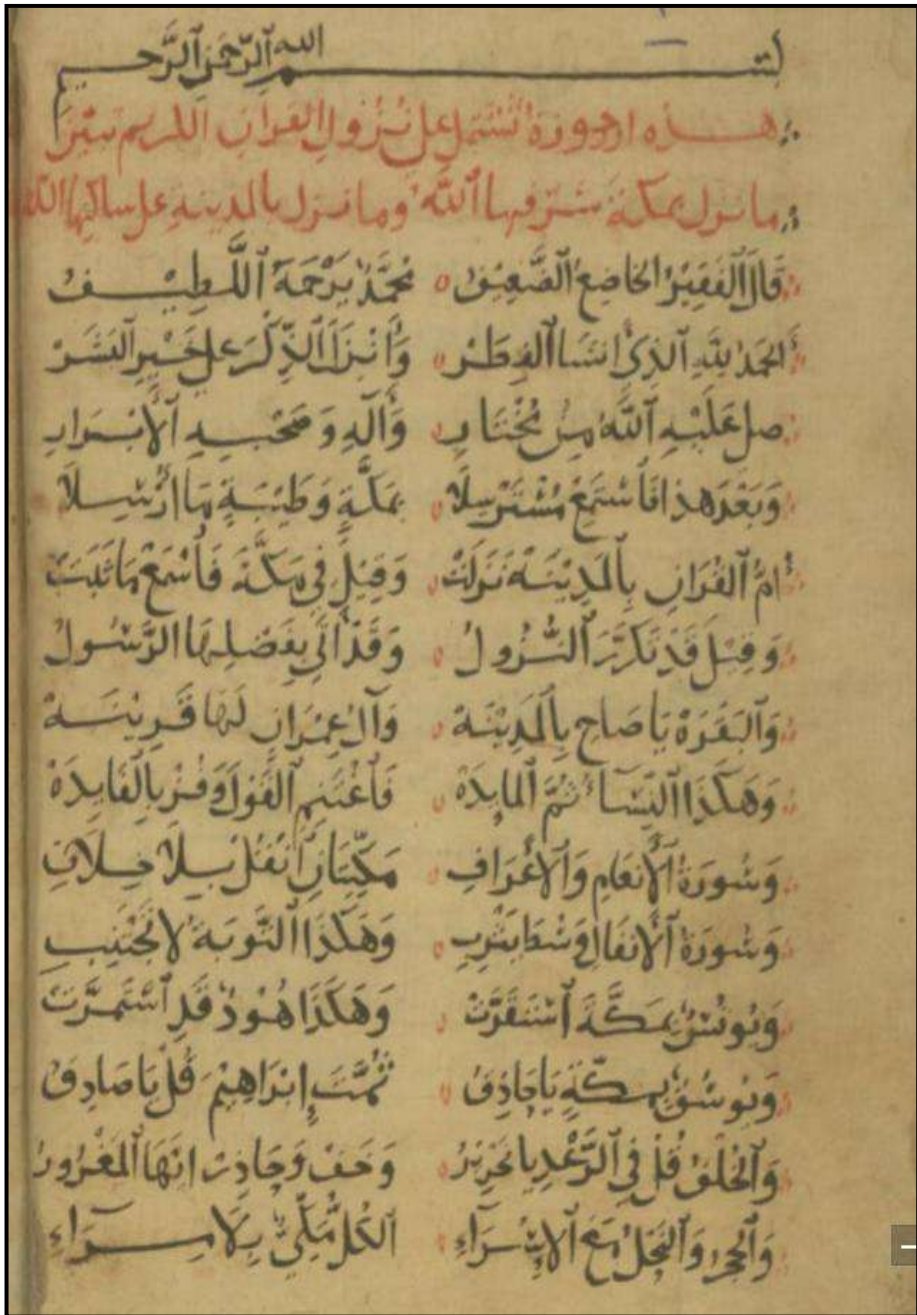 بسم الله الرحمن الرحيم
هذه ارجوزة تشتمل على نزول القران الكريم تبين
ما نزل بمكة شرفها الله وما نزل بالمدينه على ساكنها
قَالَ الْفَقِيرُ الخَاضِعُ الضَّعِيفُ مُحَمَّدٌ بِرَحْمَةِ اللَّطِيْفُ
الحَمْدُ لِلَّهِ الَّذِي انْشَا الْفِطَرْ وَأَنْزَلَ الذِّكْرَ عَلَى خَيْرِ الْبَشَرْ
صلى عَلَيْهِ اللَّهُ مِنْ مُخْتَارِ وَآلِهِ وَصَحْبِهِ الْأَبْرَارِ
وَبَعْدَ هذا فَاسْتَمِعْ مُسْتَرْسِلَا بمَكَّةٍ وَطَيْبَةٍ مَا ارْسِلَا
امُّ الْقُرَانِ بِالْمَدِيْنَهْ نَزَلَتْ وَقِيلَ فِي مَكَّةَ فَاسْمَعْ مَا ثَبَتَ
وَقِيْلَ قَدْ تَكَرَّرَ النُّزُولُ وَقَدْ أَتَى بِفَضْلِهَا الرَّسُولُ
وَالْبَقَرَهْ يَا صَاحِ بِالْمَدِيْنَهْ وَآلُ عِمْرَانٍ لَهَا قَرِيْنَهْ
وَهَكَذَا النِّسَاءُ ثُمَّ الْمَايدَهْ فَاغْتَنِمِ الْقَوْلَ وَفُزْ بِالْفَايِدَهْ
وَسُورَةُ الْأَنْعَامِ وَالْأَعْرَافِ مَكِّيَّتَانِ انْقُلْ بِلَا خِلَافِ
وَسُورَةُ الْأَنْفَالِ وَسْطَ يَثْرِبِ وَهَكَذَا التَّوْبَةُ لَا تَجْتَنِبِ
وَيُونُسٌ بمَكَّةَ اسْتَقَرَّتْ وَهَكَذَا هُودُ قَدِ اسْتَمَرَّتْ
وَيُوسُفٌ بِمَكَّةٍ يَا حَاذِقُ ثُمَّتَ إِبْرَاهِيْمَ قُلْ يَا صَادِقُ
وَالْخُلْفُ قُلْ فِي الرَّعْدِ يَا نِحْرِيْرُ وَخَفْ وَحَاذِرْ انهَا الْمَغْرُورُ
وَالْحِجْرُ وَالنَّحْلُ مَعَ الْإِسْرَاءِ الكُلُّ مَكِّيٌّ بِلَا مِرَاءِ